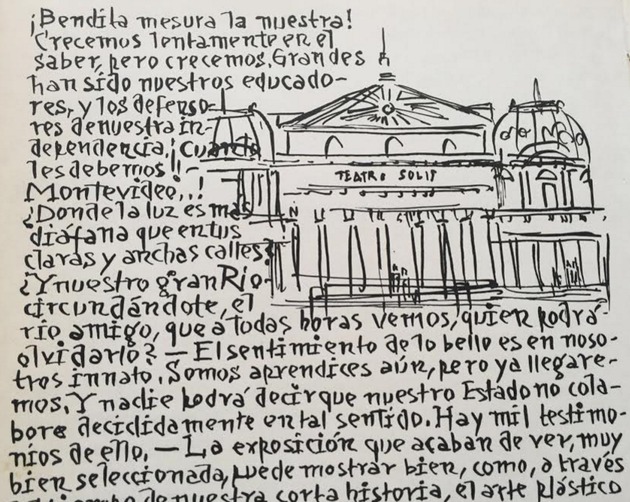 ¡Bendita mesura la nuestra!
Crecemos lentamente en el
saber, pero crecemos. Grandes
han sido nuestros educado-
res, y los defenso-
res de nuestra in-
dependencia, ¡Cuanto
les debemos!! -
Montevideo,..!
¿Donde la luz es mas
diáfana que en tus
claras y anchas calles?
¿Y nuestro gran Rio-
circundándote, el
río amigo, que a todas horas vemos, quien podrá-
olvidarlo? — El sentimiento de lo bello es en noso-
tros innato. Somos aprendices aún, pero ya llegare-
mos. Y nadie podrá decir que nuestro Estado no cola-
bore decididamente en tal sentido. Hay mil testimo-
nios de ello. — La exposición que acaban de ver, muy
bien seleccionada, puede mostrar bien, como, a través
de nuestra corta historia, el arte plástico
TEATRO SOLIS